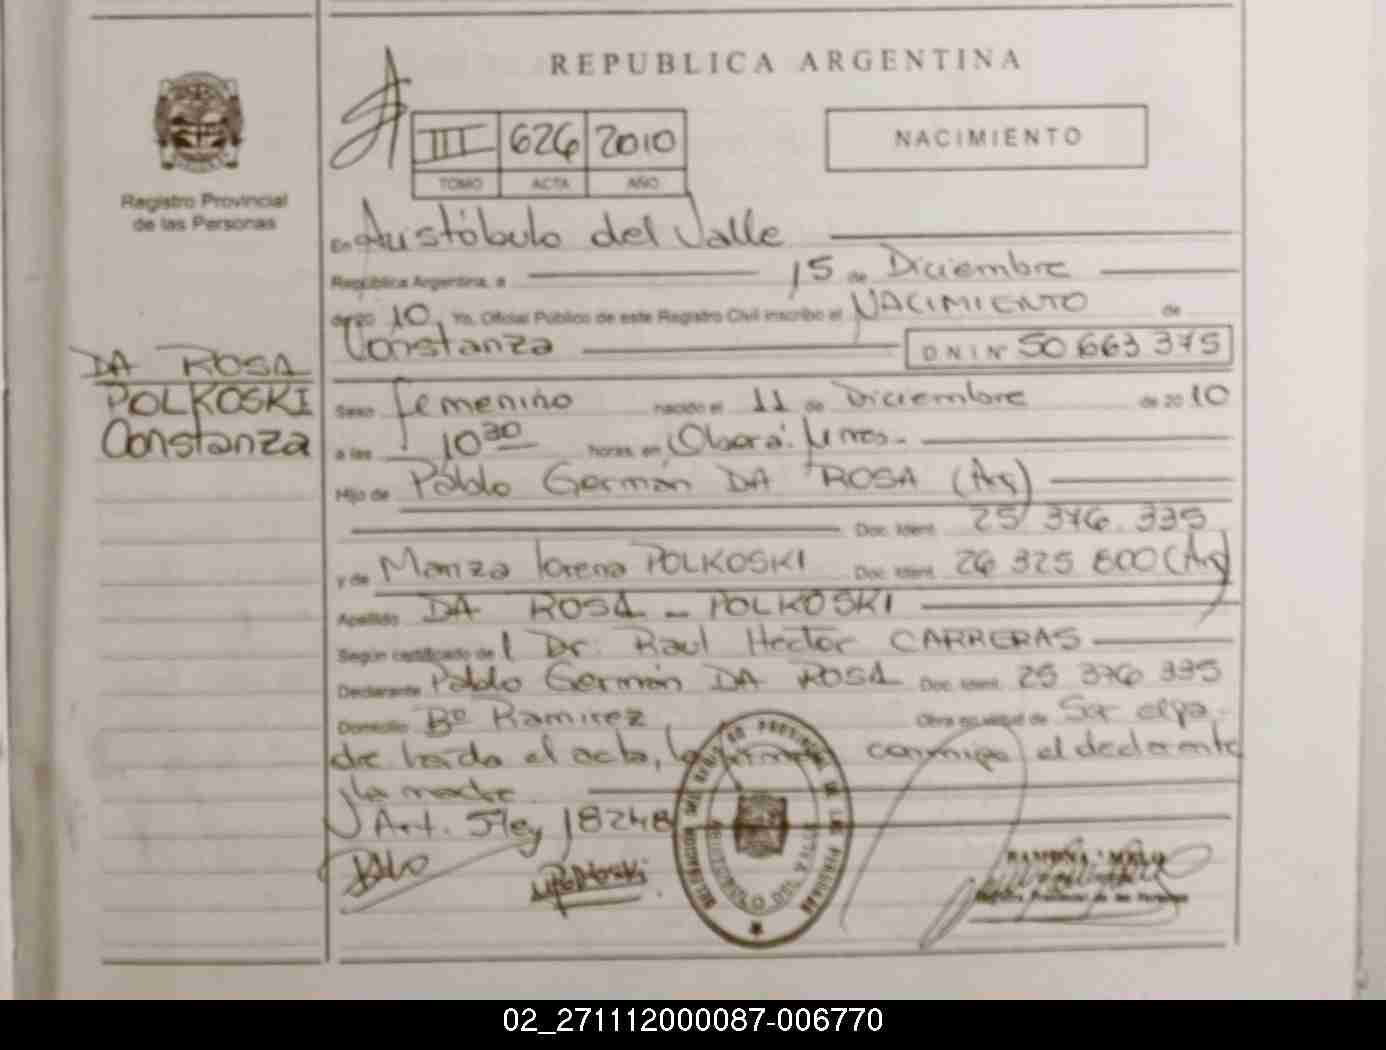 REPUBLICA ARGENTINA
III 626 2010
TOMO ACTA AÑO
NACIMIENTO
Registro Provincial
de las Personas
En Aristóbulo del Valle
República Argentina, a 15 de Diciembre
de 20 10 Yo, Oficial Público de este Registro Civil inscribo el NACIMIENTO de
Constanza DNI Nº 50 663 375
DA ROSA
POLKOSKI
Constanza
Sexo femenino nacido el 11 de Diciembre de 20 10
a las 10 30 horas, en Oberá. Mnes.
Hijo de Pablo Germán DA ROSA (Arg)
Doc. Ident. 25 376 335
y de Mariza lorena POLKOSKI Doc. Ident. 26 325 800 (Arg)
Apellido DA ROSA - POLKOSKI
Según certificado de l Dr. Raul Hector CARRERAS
Declarante Pablo Germán DA ROSA Doc. Ident. 25 376 335
Domicilio Bº Ramirez Obra en virtud de Ser el pa-
dre leída el acta, la firma conmigo el declarante
y la madre
Art. 5 ley 18248
MPolkoski
ARISTOBULO DEL VALLE
Registro Provincial de las Personas
02_271112000087-006770